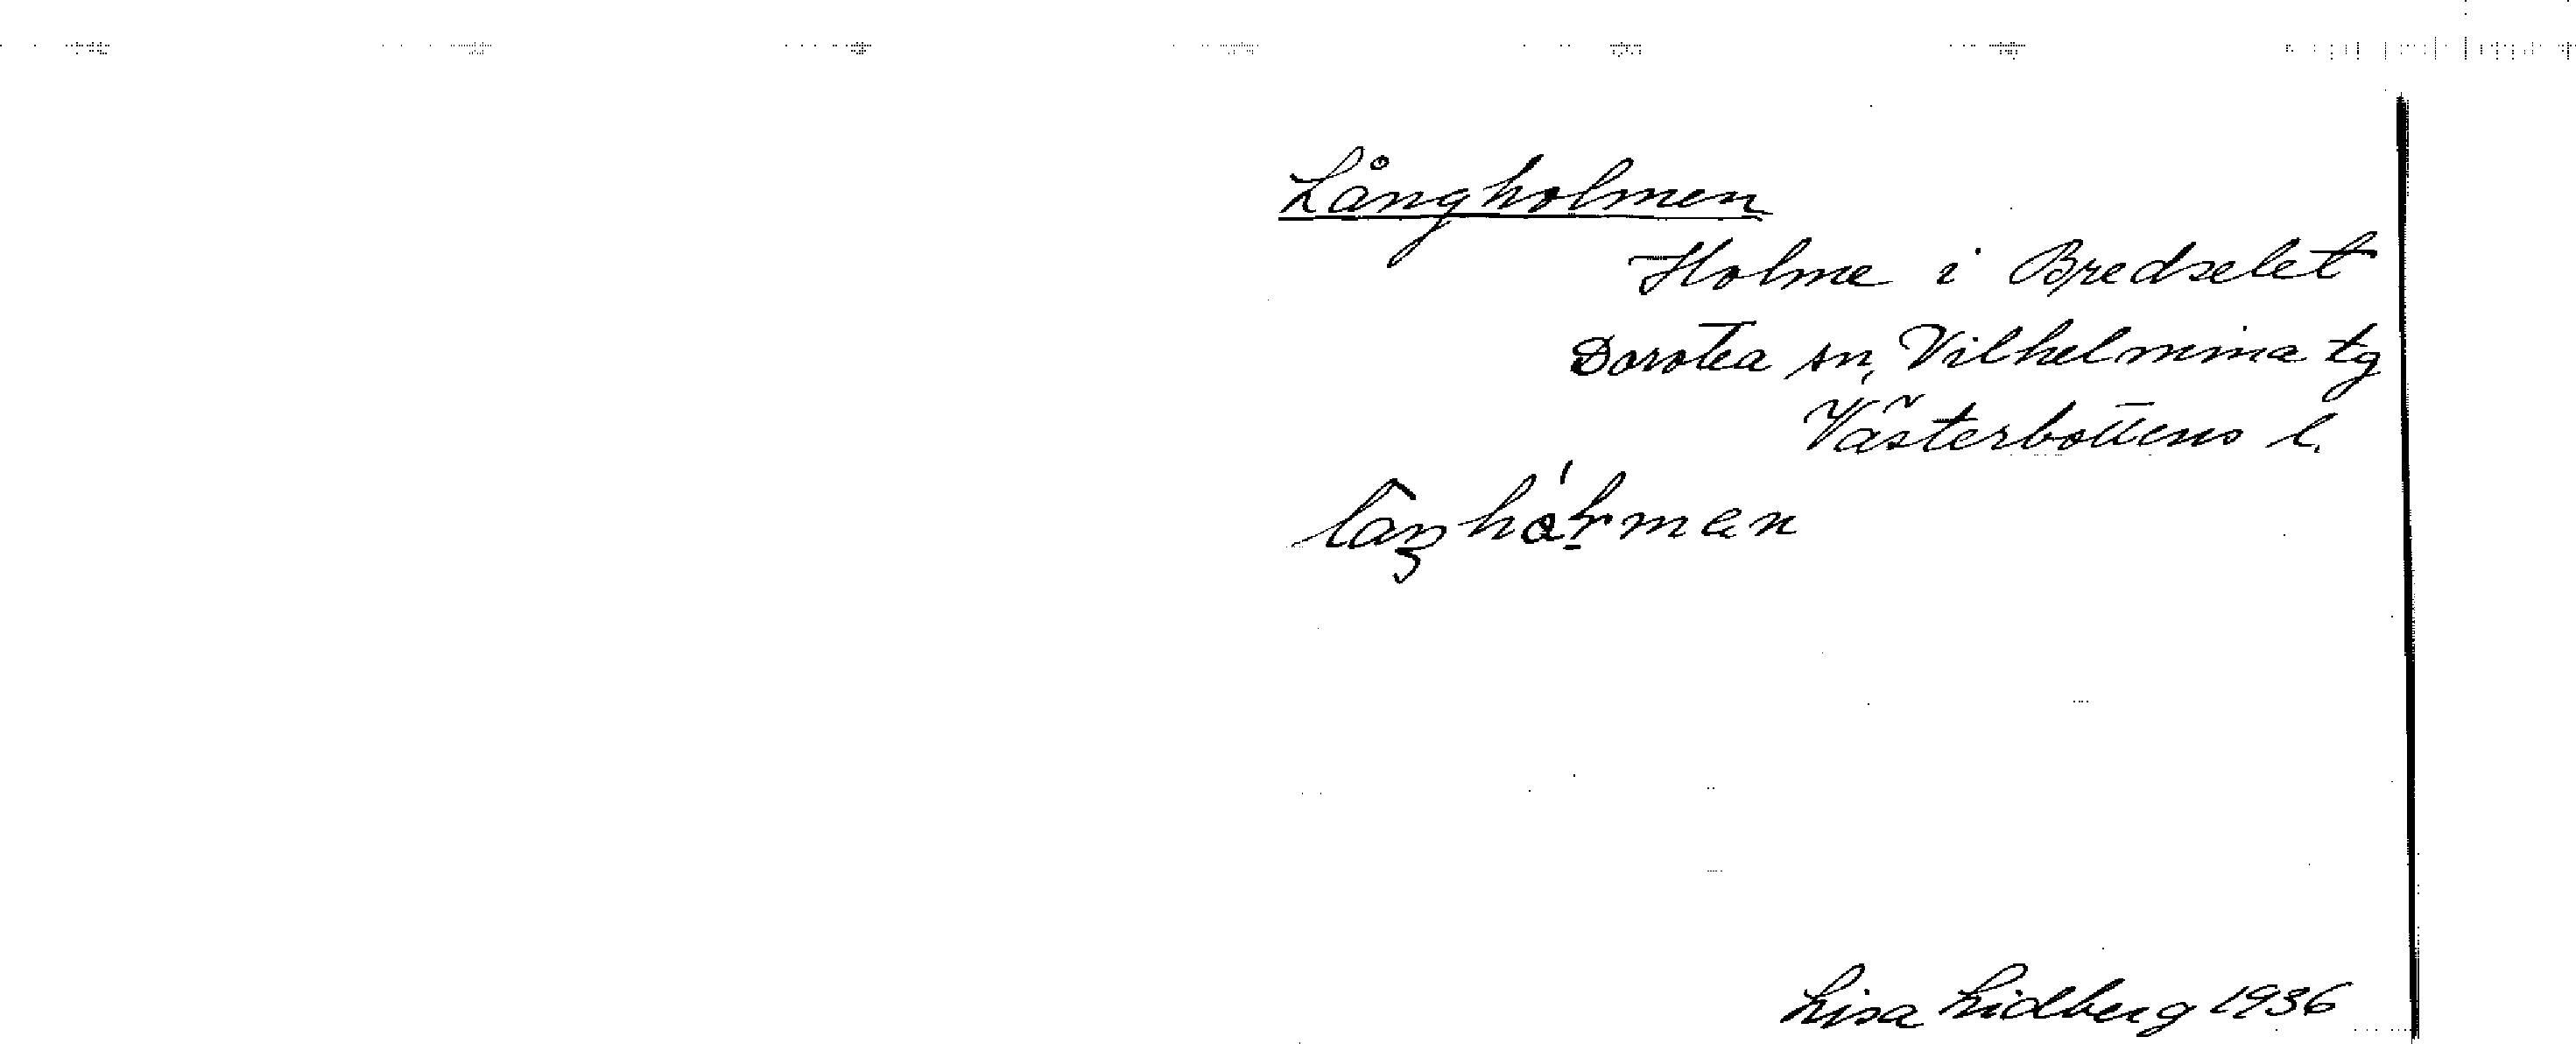 Långholmen
Holme i Bredselet
Dorotea sn, Vilhelmina tg
Västerbottens l.
Lisa Lidberg 1936